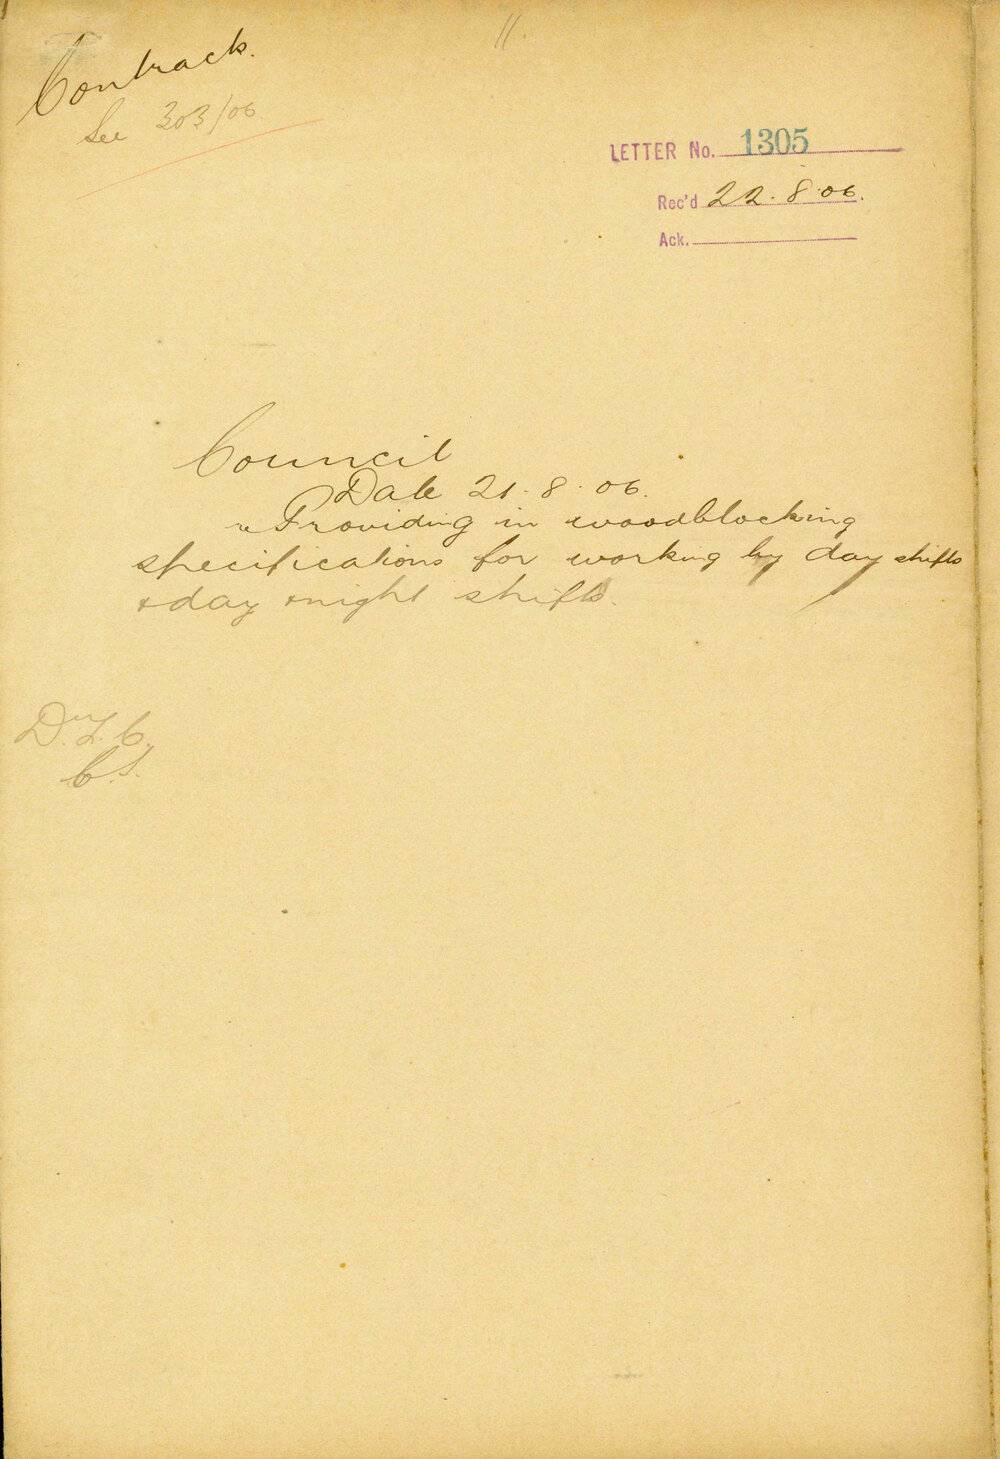 11.
Contrack.
See 303/06
LETTER No. 1305
Rec'd 22.8.06.
Ack.
Council
Date 21.8.06.
re Providing in woodblocking
specifications for working by day shifts
& day & night shifts.
C.S.